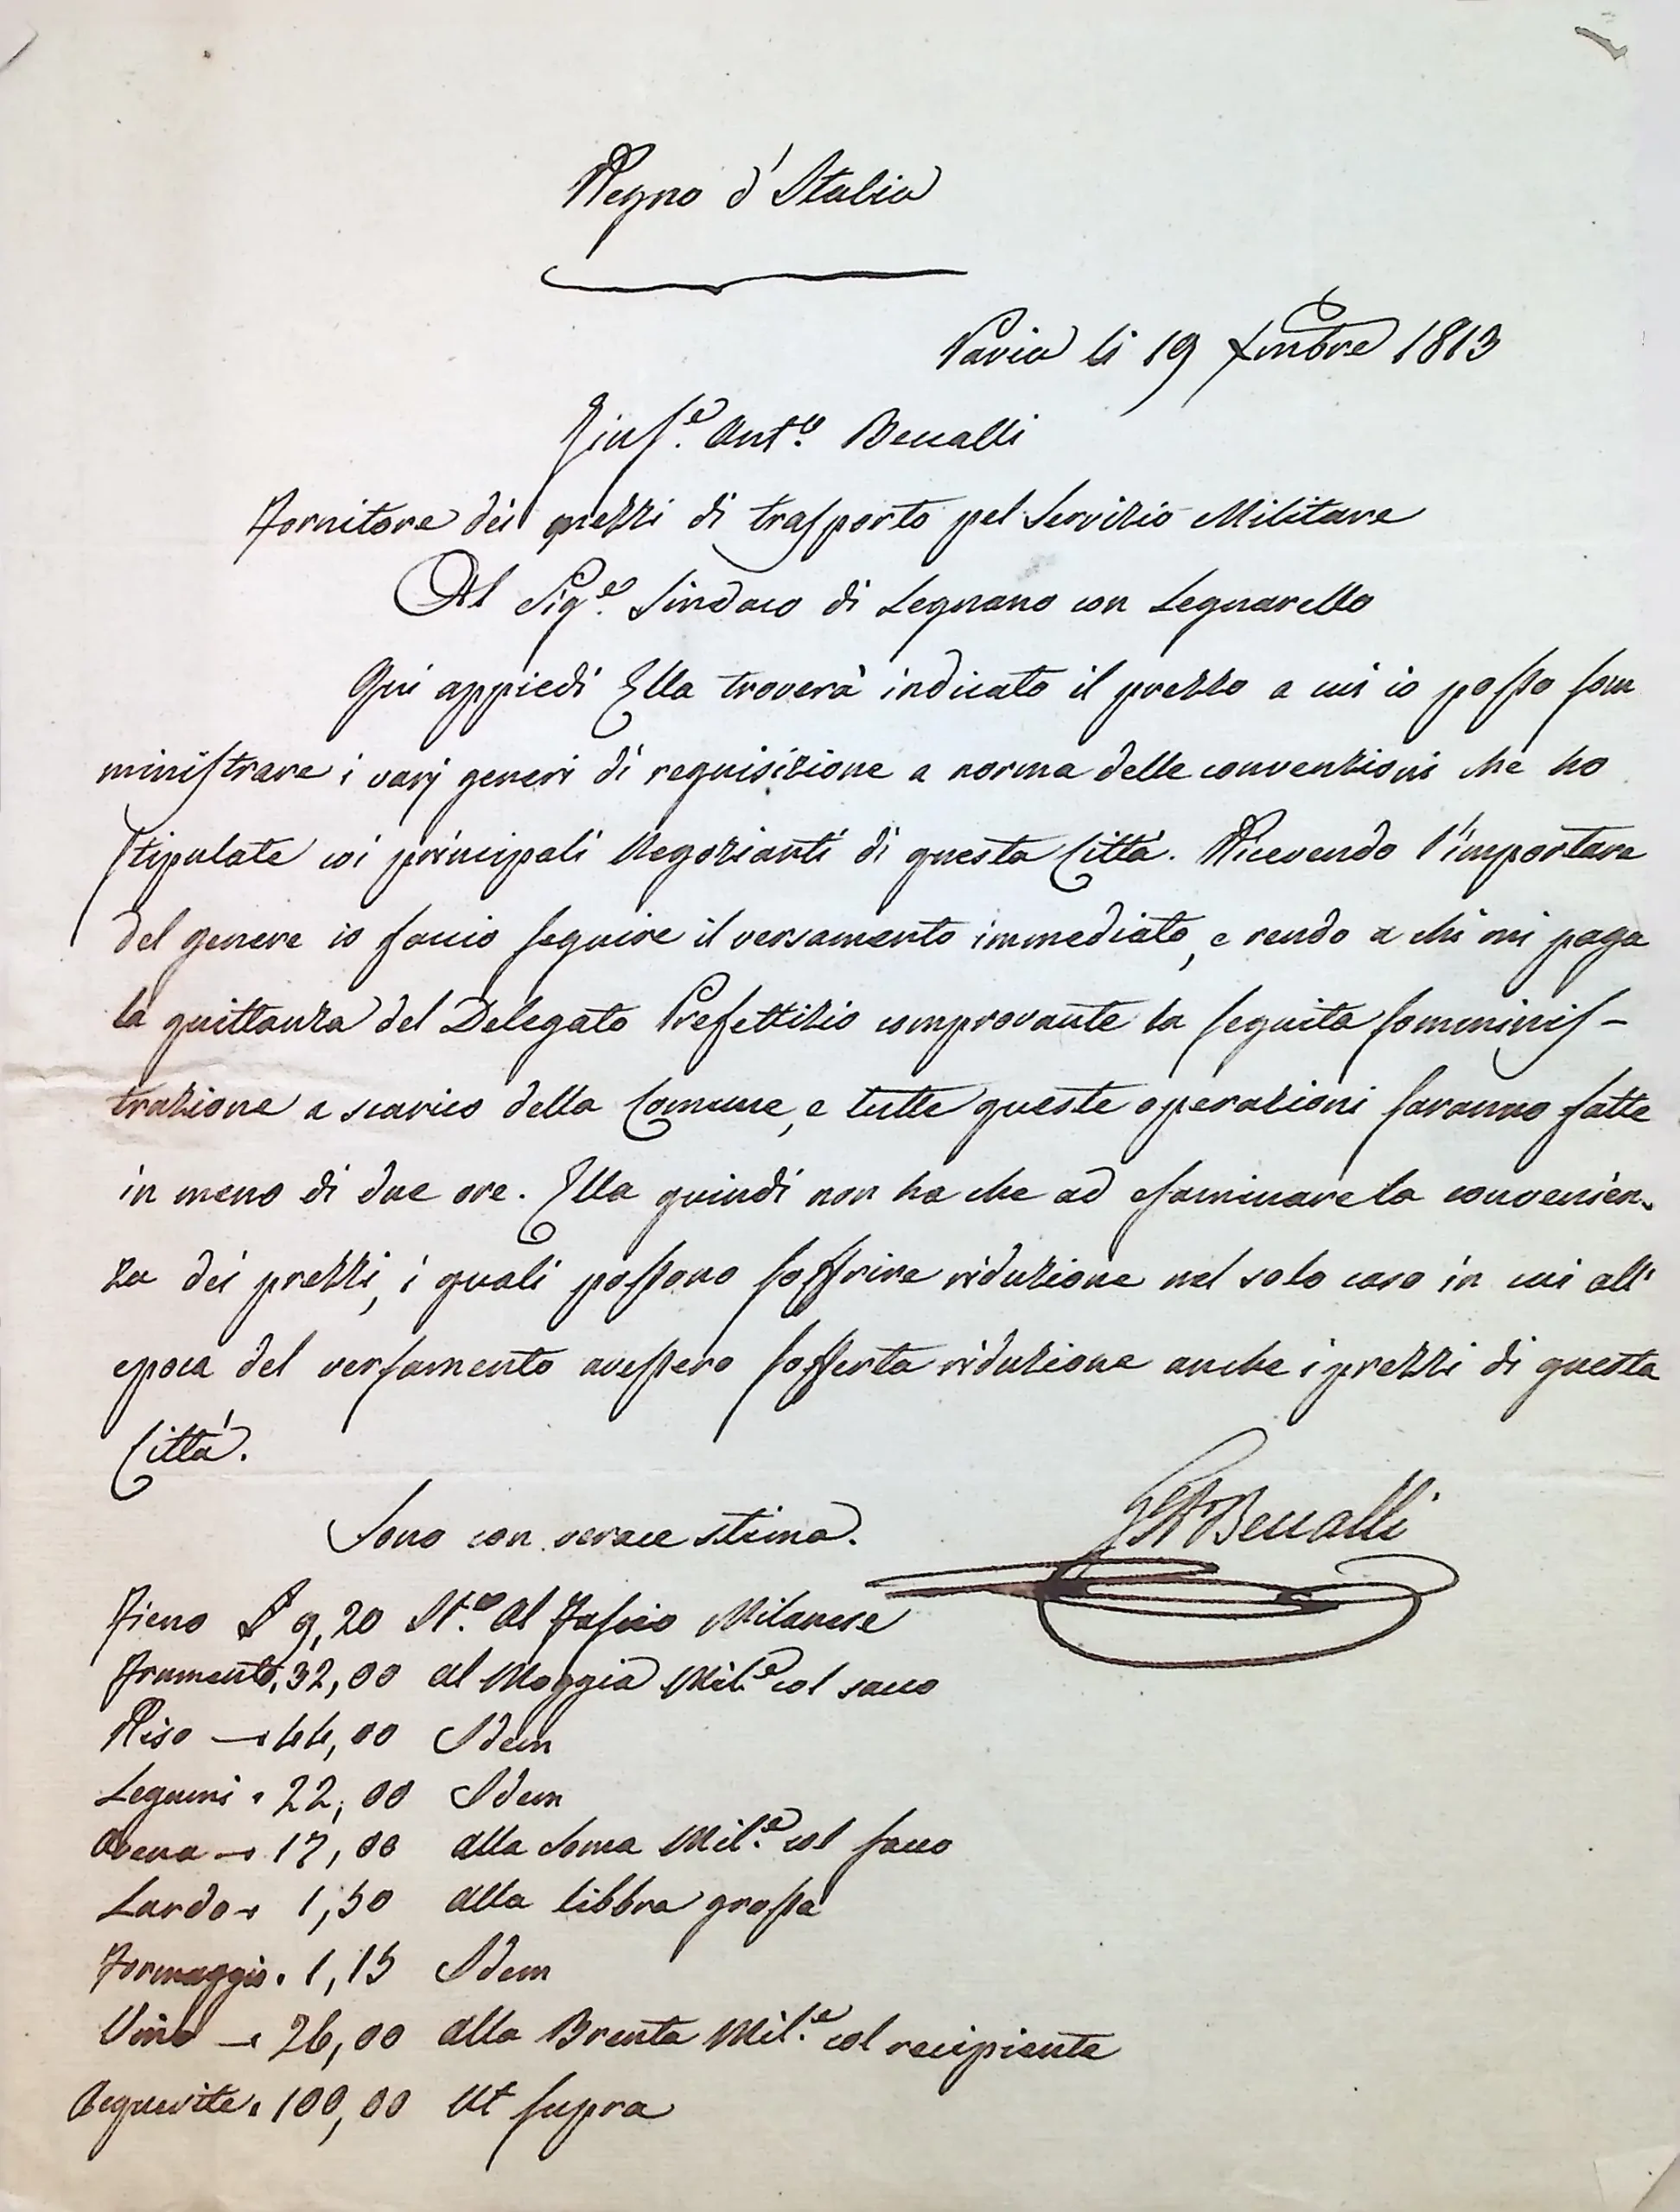 Regno d'Italia
Pavia li 19 Xmbre 1813
Giuse. Anto. Beccalli
Fornitore dei mezzi di trasporto pel Servizio Militare
Al Sige. Sindaco di Legnano con Legnarello
Qui appiedi Ella troverà indicato il prezzo a cui io posso som
ministrare i varj generi di requisizione a norma delle convenzioni che ho
stipulate coi principali Negozianti di questa Città. Ricevendo l'importare
del genere io faccio seguire il versamento immediato, e rendo a chi mi paga
la quittanza del Delegato Prefettizio comprovante la seguita somminis-
trazione a scarico della Comune, e tutte queste operazioni saranno fatte
in meno di due ore. Ella quindi non ha che ad esaminare la convenien-
za dei prezzi, i quali possono soffrire riduzione nel solo caso in cui all'
epoca del versamento avessero sofferta riduzione anche i prezzi di questa
Città.
Sono con verace stima.
GA Beccalli
Fieno £ 9,20 Ite. Al Fascio Milanese
Frumento. 32,00 Al Moggia Mile. col sacco
Riso — 44,00 Idem
Legumi . 22,00 Idem
Avena — 17,00 Alla Soma Mile. col sacco
Lardo - 1,50 Alla libbra grossa
Formaggio . 1,15 Idem
Vino — 26,00 Alla Brenta Mile. col recipiente
Acquevite . 100,00 Ut supra